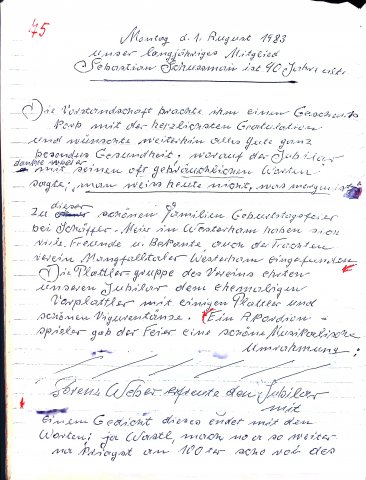 45
Montag d. 1. August 1983
unser langjähriges Mitglied
Sebastian Schussman ist 90 Jahre alt
Die Vorstandschaft brachte ihm einen Geschenk
korb mit der herzlichsten Gratulation
und wünschte weiterhin alles Gute ganz
besondes Gesundheit. worauf der Jubilar
dankte wieder
mit seinen oft gebräuchlichen Worten
sagte; man weiss heute nicht, was morgen ist
dieser
zu schönen Familien Geburtstagsfeier
bei Schäffer-Neis in Westerham haben sich
viele Freunde u Bekante, auch der Trachten
verein Mangfalltaler Westerham eingefunden
Die Plattlergruppe des Vereins ehrten
unseren Jubilar dem ehemaligen
Vorplattler mit einigen Plattler und
schönen Vigurentänse. Ein Akordion-
spieler gab der Feier eine schöne Musikalische
Umrahmung:
Lorenz Weber erfreute den Jubilar
mit
einem Gedicht dieses endet mit den
Worten; ja Wastl, mach no a so weiter
na am 100ter des